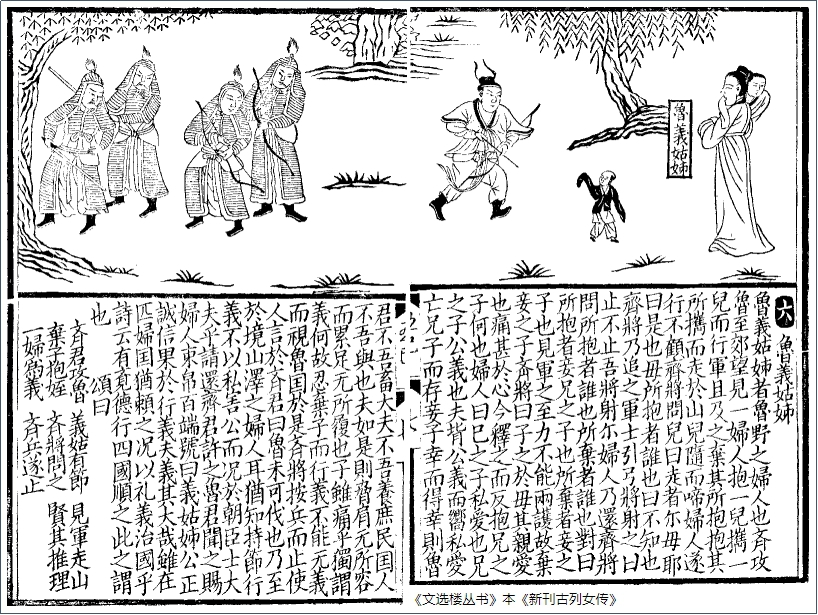 魯義姑姊
六 魯義姑姊
魯義姑姊者魯野之婦人也斉攻
魯至郊望見一婦人抱一兒攜一
兒而行軍且及之棄其所抱抱其
所攜而走於山兒隨而啼婦人遂
行不顧齊將問兒曰走者尓母耶
曰是也母所抱者誰也曰不知也
齊將乃追之軍士引弓將射之曰
止不止吾將射尓婦人乃還齊將
問所抱者誰也所棄者誰也對曰
所抱者妾兄之子也所棄者妾之
子也見軍之至力不能兩護故棄
妾之子斉將曰子之於母其親愛
也痛甚於心今釋之而反抱兄之
子何也婦人曰己之子私愛也兄
之子公義也夫背公義而嚮私愛
亡兄子而存妾子幸而得幸則魯
君不吾畜大夫不吾養庶民国人
不吾與也夫如是則脅肩无所容
而累足无所履也子雖痛乎獨謂
義何故忍棄子而行義不能无義
而視魯国於是斉將按兵而止使
人言於斉君曰魯未可伐也乃至
於境山澤之婦人耳猶知持節行
義不以私害公而况於朝臣士大
夫乎請還齊君許之魯君聞之賜
婦人束帛百端號曰義姑姊公正
誠信果於行義夫義其大哉雖在
匹婦国猶賴之况以礼義治國乎
詩云有覺德行四國順之此之謂
也　頌曰
斉君攻魯　義姑有節　見軍走山
棄子抱姪　斉將問之　賢其推理
一婦為義　斉兵遂止
《文选楼丛书》本《新刊古列女传》